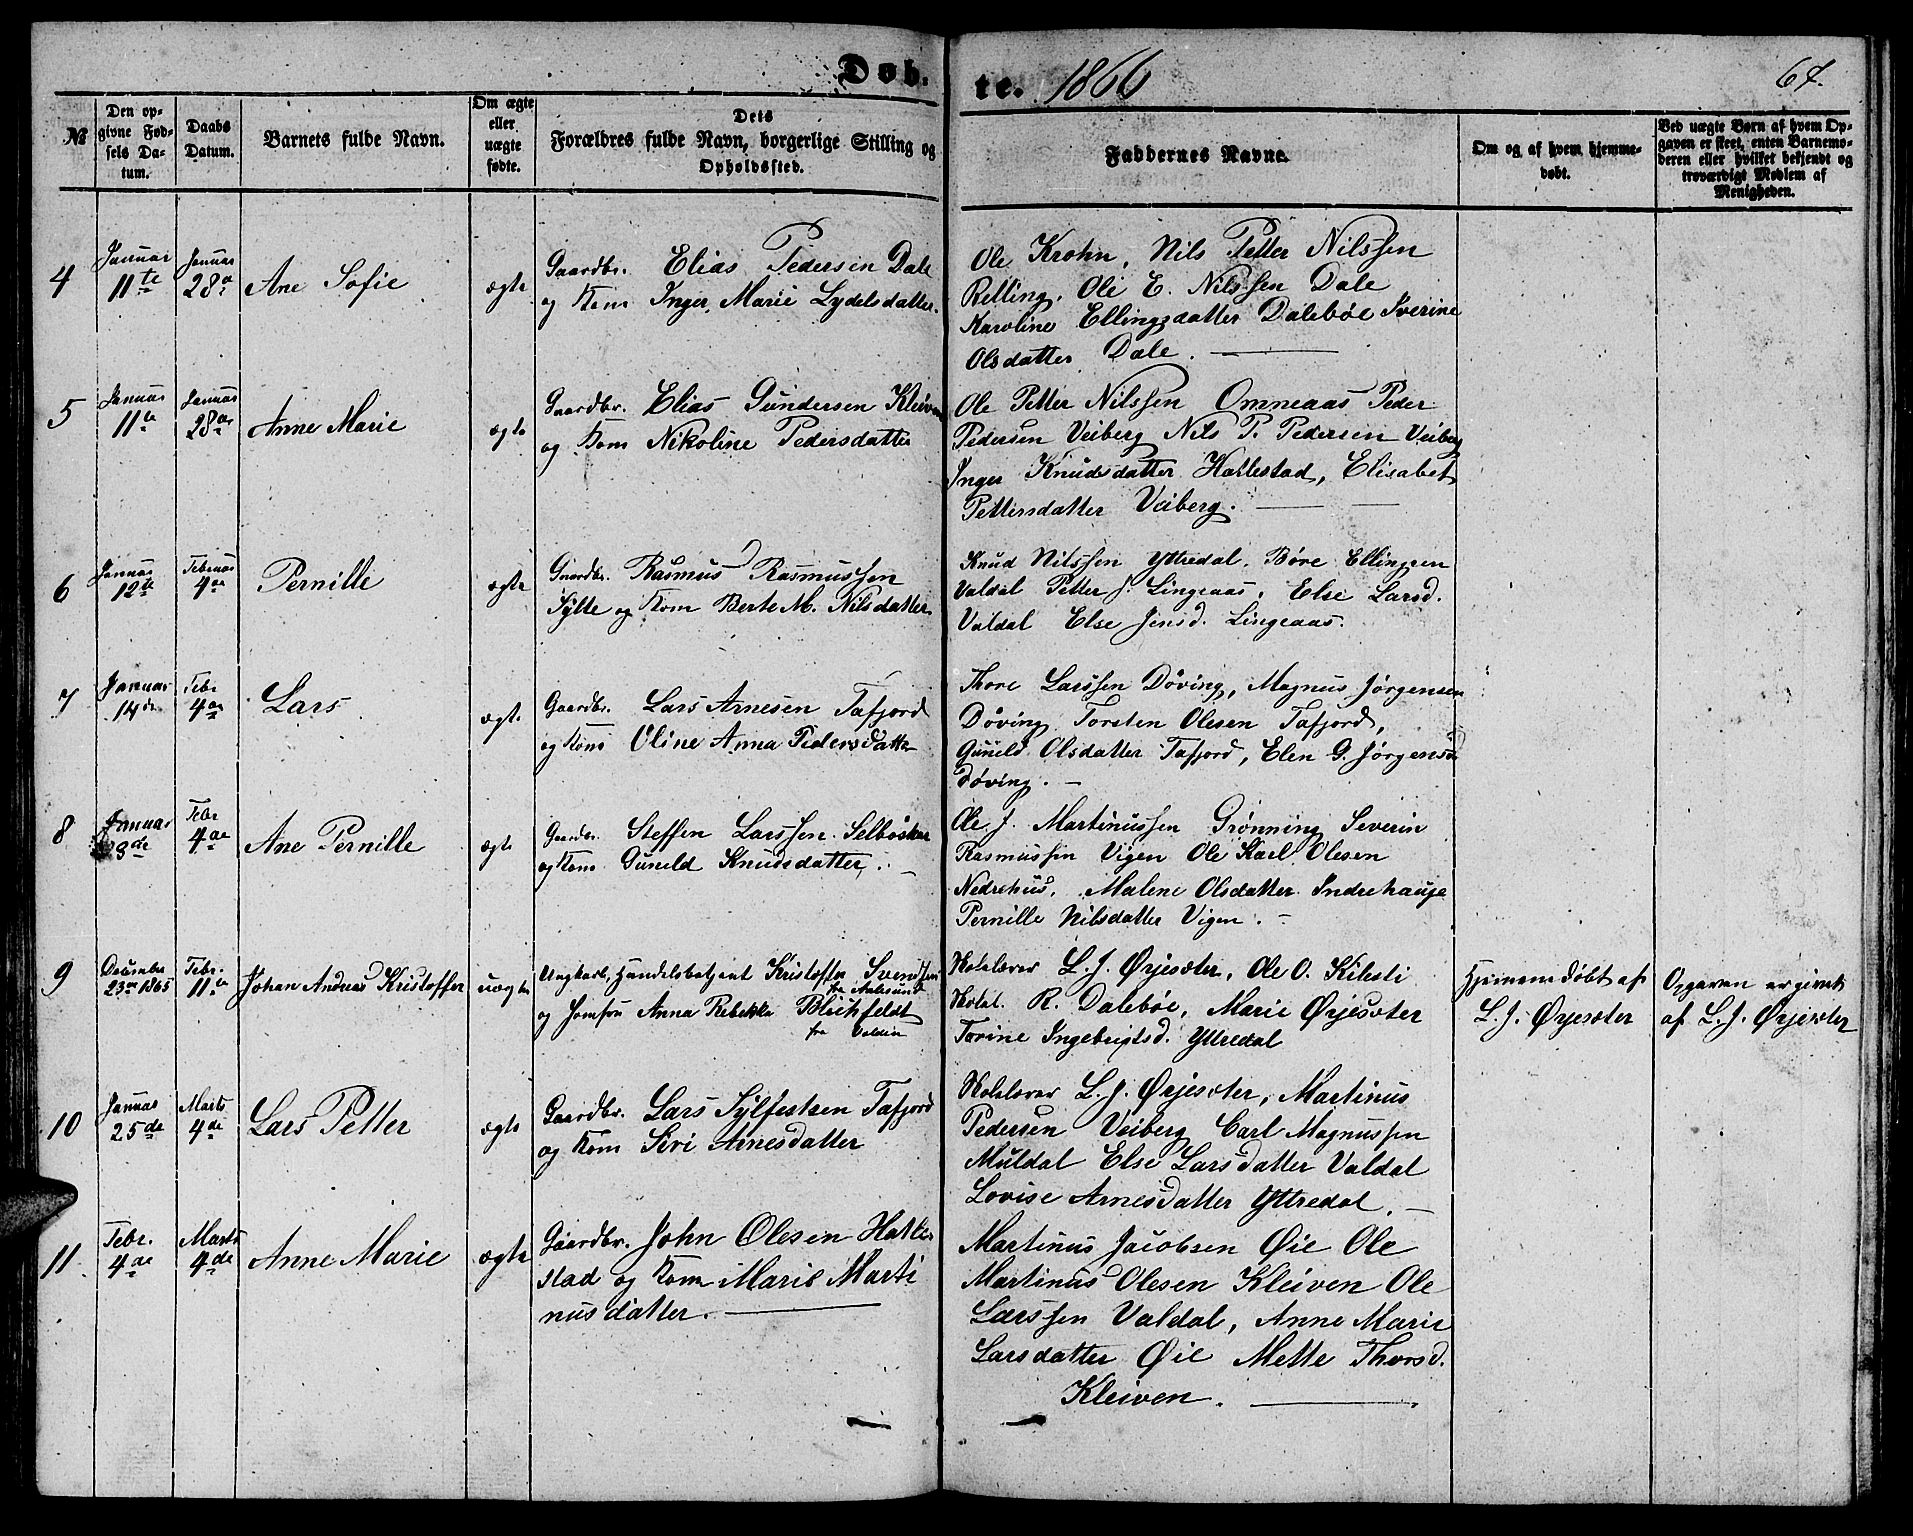 Døb. te. 1866
67.
№
Den opgivne Fødsels Datum.
Daabs Datum.
Barnets fulde Navn.
Om ægte eller uægte fødte.
Dets Forældres fulde Navn, borgerlige Stilling og Opholdssted.
Faddernes Navne.
Om og af hvem hjemmedøbt.
Ved uægte Børn af hvem Opgaven er skeet, enten Barnemoderen eller hvilket bekjendt og troværdigt Medlem af Menigheden.
4
Januar
11te
Januar
28de
Ane Sofie
ægte
Gaardbr. Elias Pedersen Dale
og Kone Inger Marie Lydelsdatter.
Ole Krohn, Nils Petter Nilssen
Relling, Ole E. Nilssen Dale
Karoline Ellingsdatter Dalebøe Sverine
Olsdatter Dale.
5
Januar
11te
Januar
28de
Anne Marie
ægte
Gaardbr. Elias Gundersen Kleiven
og Kone Nikoline Pedersdatter
Ole Petter Nilssen Omneaas Peder
Pedersen Veiberg Nils P. Pedersen Veiberg
Inger Knudsdatter Hatlestad, Elisabet
Pettersdatter Veiberg.
6
Januar
12te
Februar
4de
Pernille
ægte
Gaardbr. Rasmus Rasmussen
Sylte og Kone Berte M. Nilsdatter
Knud Nilssen Yttredal. Børe Ellingsen
Valdal Petter J. Lingeaas, Else Larsd.
Valdal Else Jensd. Lingeaas.
7
Januar
14de
Febr
4de
Lars
ægte
Gaardbr. Lars Arnesen Tafjord
og Kone Oline Anna Pedersdatter
Thore Larssen Døving, Magnus Jørgensen
Døving Torsten Olesen Tafjord,
Gunild Olsdatter Tafjord, Elen G. Jørgensd
Døving.
8
Januar
Febr
4de
Ane Pernille
ægte
Gaardbr. Steffen Larssen Selboskar
og Kone Gunild Knudsdatter.
Ole J. Martinussen Grønning Severin
Rasmussen Vigen Ole Karl Olesen
Nedrehus, Malene Olsdatter Indrehauge
Pernille Nilsdatter Vigen.
9
December
23de 1865
Febr.
11te
Johan Andreas Kristoffer
uægte
Ungkarl, Handelsbetjent Kristoffer Svendsen
fra Aalesund
og Jomfru Anna Rebekka Blichfeldt
fra Volden
Skolelærer L. J. Ørjesæter, Ole O. Kilsti
Skolel. R. Dalebøe, Marie Ørjesæter
Torine Ingebrigtsd. Yttredal
Hjemmedøbt af
L. J. Ørjesæter
Opgaven er givet
af L. J. Ørjesæter
10
Januar
25de
Marts
4de
Lars Petter
ægte
Gaardbr. Lars Sylfestsen Tafjord
og Kone Siri Arnesdatter
Skolelærer L. J. Ørjesæter, Martinus
Pedersen Veiberg Carl Magnussen
Muldal Else Larsdatter Valdal
Lovise Arnesdatter Yttredal.
11
Febr.
4de
Marts
4de
Anne Marie
ægte
Gaardbr. John Olesen Hatle-
stad og Kone Marie Marti
nusdatter.
Martinus Jacobsen Øie Ole
Martinus Olesen Kleiven Ole
Larssen Valdal, Anne Marie
Larsdatter Øie Mette Thorsd.
Kleiven.